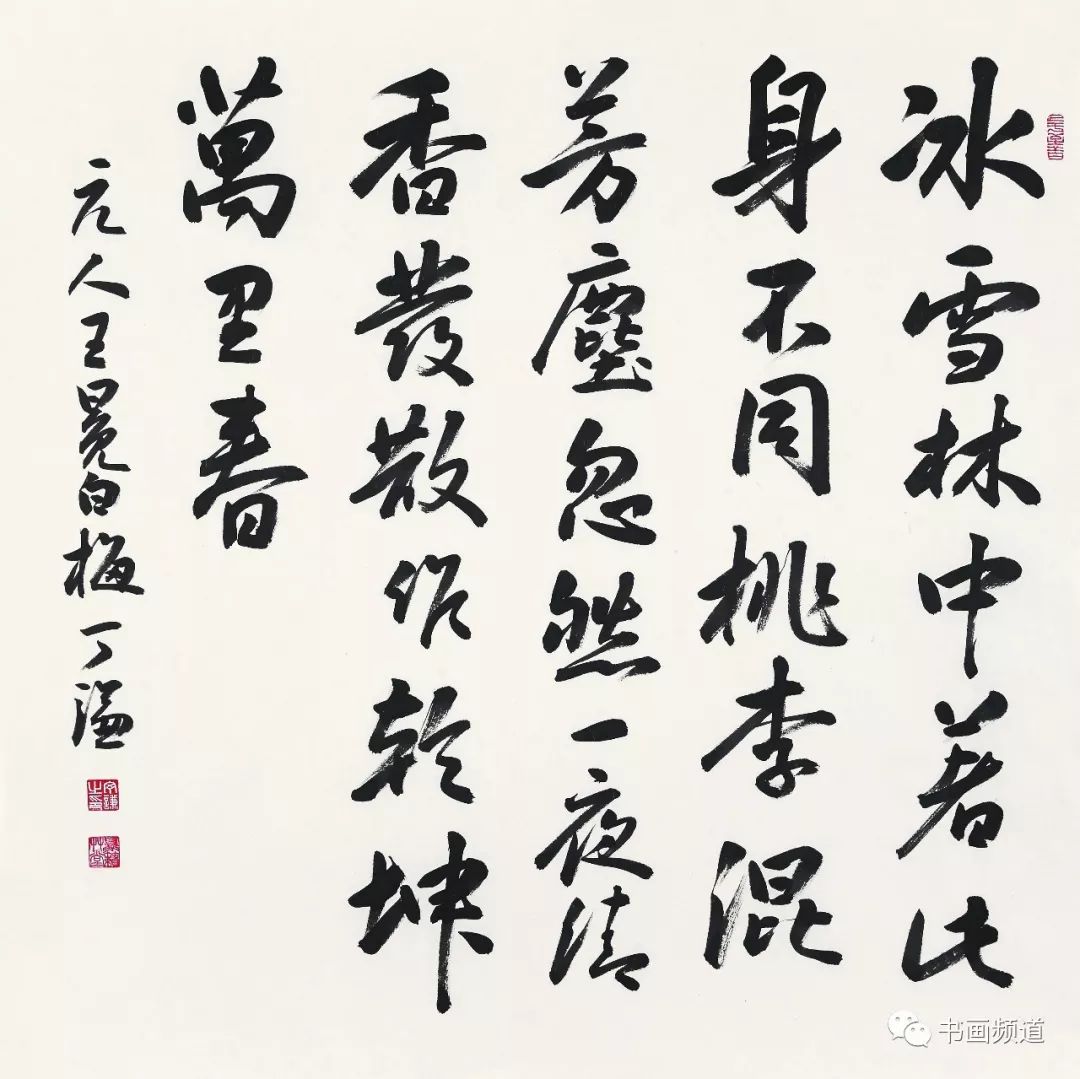 冰雪林中著此
身不同桃李混
芳塵忽然一夜清
香發散作乾坤
萬里春
元人王冕白梅丁謙
书画频道